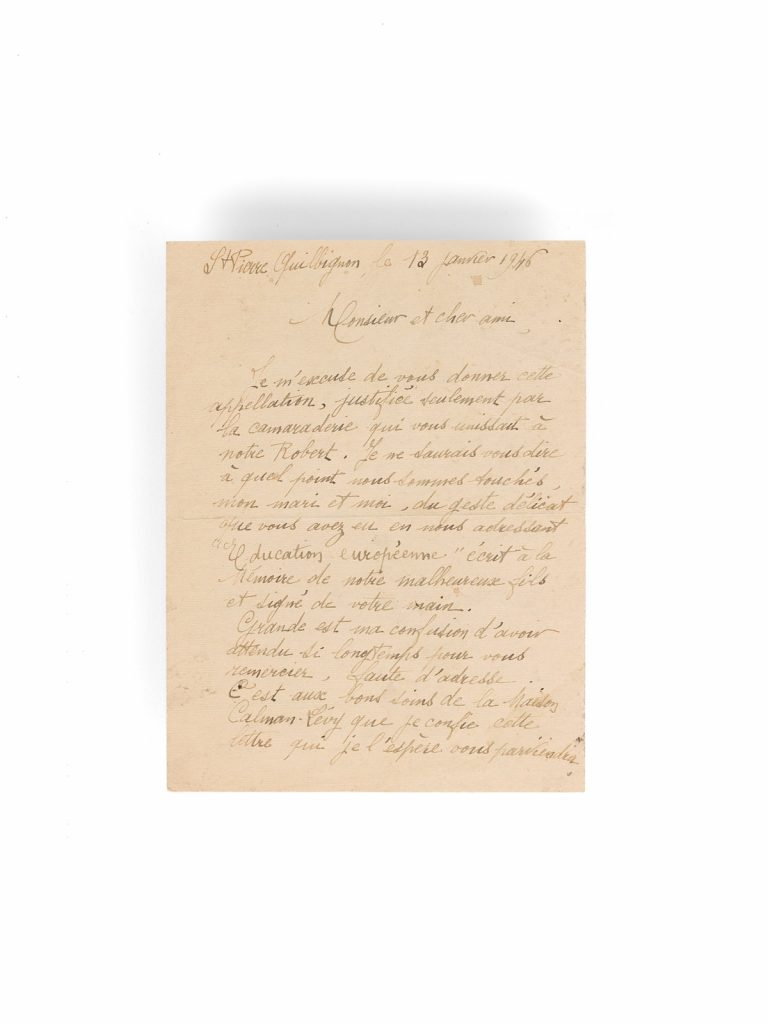 St Pierre Quilbignon, le 13 janvier 1946
Monsieur et cher ami,
Je m'excuse de vous donner cette
appellation, justifiée seulement par
la camaraderie qui vous unissait à
notre Robert. Je ne saurais vous dire
à quel point nous sommes touchés,
mon mari et moi, du geste délicat
que vous avez eu en nous adressant
"Education européenne" écrit à la
Mémoire de notre malheureux fils
et signé de votre main.
Grande est ma confusion d'avoir
attendu si longtemps pour vous
remercier, faute d'adresse.
C'est aux bons soins de la Maison
Calman-Lévy que je confie cette
lettre qui je l'espère vous parviendra